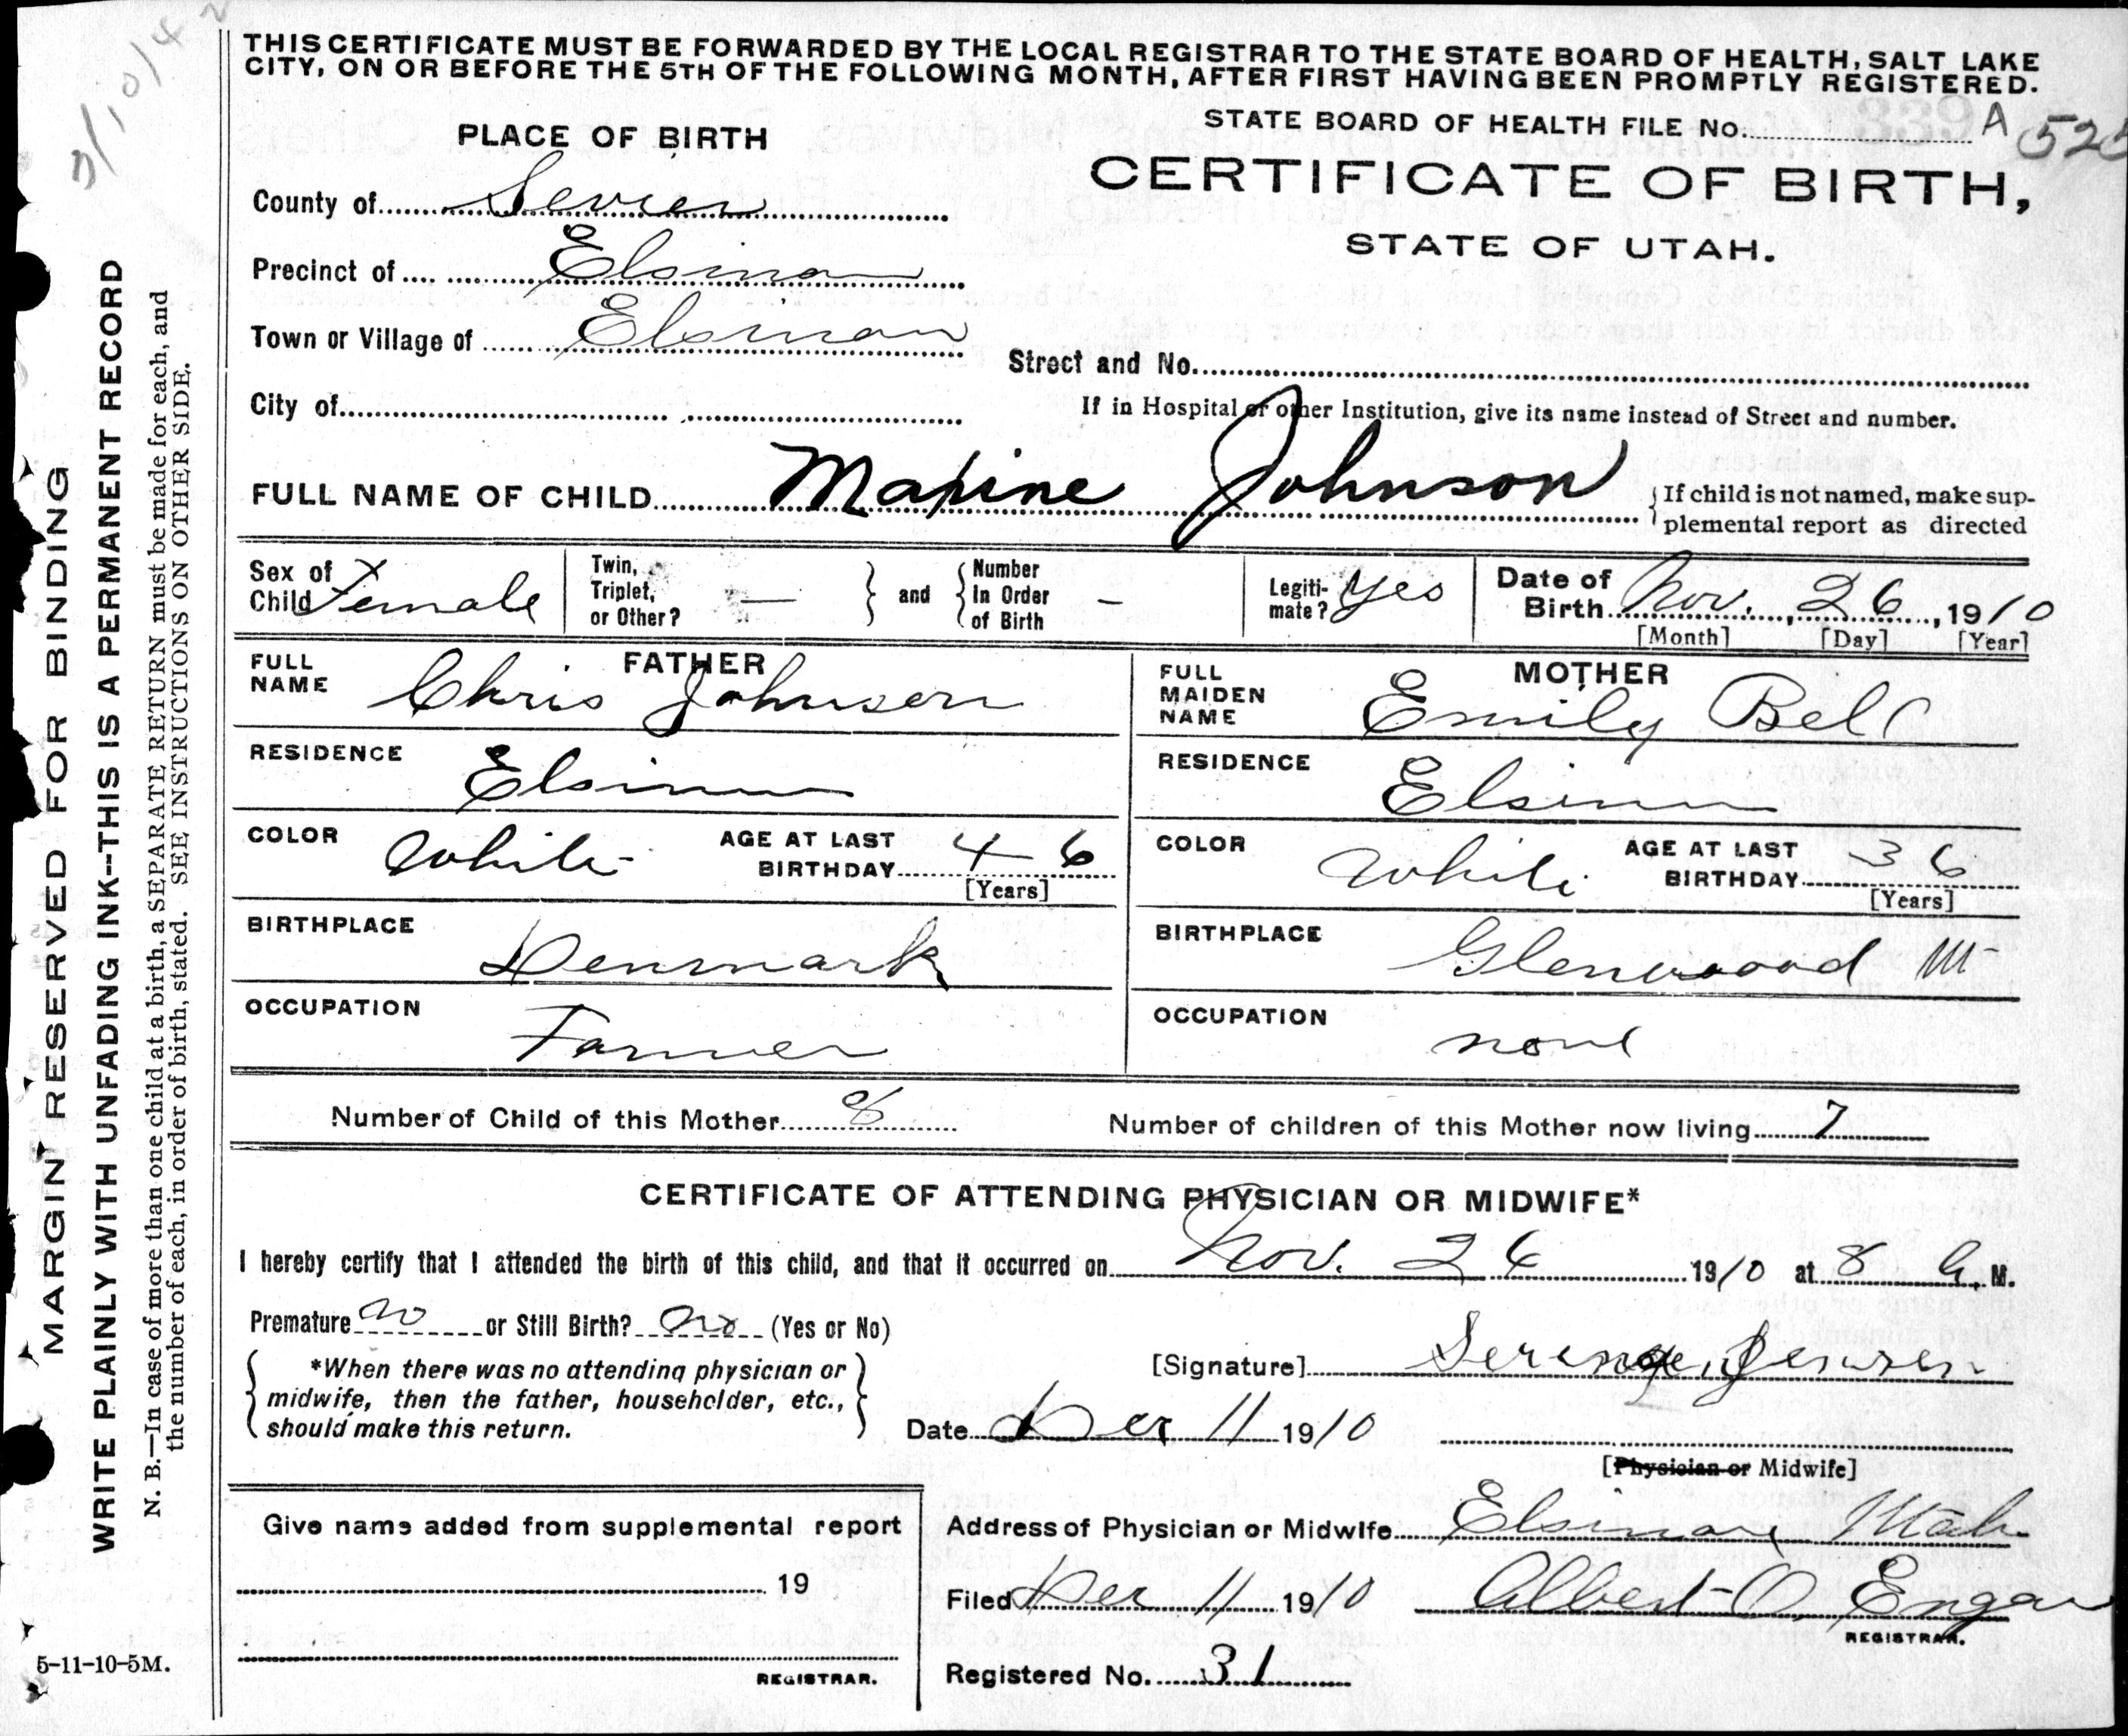 THIS CERTIFICATE MUST BE FORWARDED BY THE LOCAL REGISTRAR TO THE STATE BOARD OF HEALTH, SALT LAKE
CITY, ON OR BEFORE THE 5TH OF THE FOLLOWING MONTH, AFTER FIRST HAVING BEEN PROMPTLY REGISTERED.
STATE BOARD OF HEALTH FILE No. 339 A
PLACE OF BIRTH
CERTIFICATE OF BIRTH,
STATE OF UTAH.
County of Sevier
Precinct of
Town or Village of
Street and No.
City of
If in Hospital or other Institution, give its name instead of Street and number.
FULL NAME OF CHILD Maxine Johnson
{If child is not named, make sup-
plemental report as directed
Sex of Child Female
Twin, Triplet, or Other? — } and { Number In Order of Birth -
Legiti-mate? yes
Date of Birth Nov. 26, 1910
[Month] [Day] [Year]
FATHER
FULL NAME Chris Johnson
RESIDENCE
COLOR White AGE AT LAST BIRTHDAY 46
[Years]
BIRTHPLACE Denmark
OCCUPATION Farmer
MOTHER
FULL MAIDEN NAME Emily Bell
RESIDENCE
COLOR White AGE AT LAST BIRTHDAY 36
[Years]
BIRTHPLACE Glenwood
OCCUPATION none
Number of Child of this Mother 8 Number of children of this Mother now living 7
CERTIFICATE OF ATTENDING PHYSICIAN OR MIDWIFE*
I hereby certify that I attended the birth of this child, and that it occurred on Nov. 26 1910 at 8 a. M.
Premature no or Still Birth? no (Yes or No)
{ *When there was no attending physician or
midwife, then the father, householder, etc.,
should make this return. }
[Signature] Jensen
Date Dec 11 1910
[Physician or Midwife]
Address of Physician or Midwife Elsinore Utah
Filed Dec 11 1910 Albert O. Engar
REGISTRAR.
Registered No. 31
Give name added from supplemental report
19
REGISTRAR.
MARGIN RESERVED FOR BINDING
WRITE PLAINLY WITH UNFADING INK--THIS IS A PERMANENT RECORD
N. B.—In case of more than one child at a birth, a SEPARATE RETURN must be made for each, and
the number of each, in order of birth, stated. SEE INSTRUCTIONS ON OTHER SIDE.
5-11-10-5M.